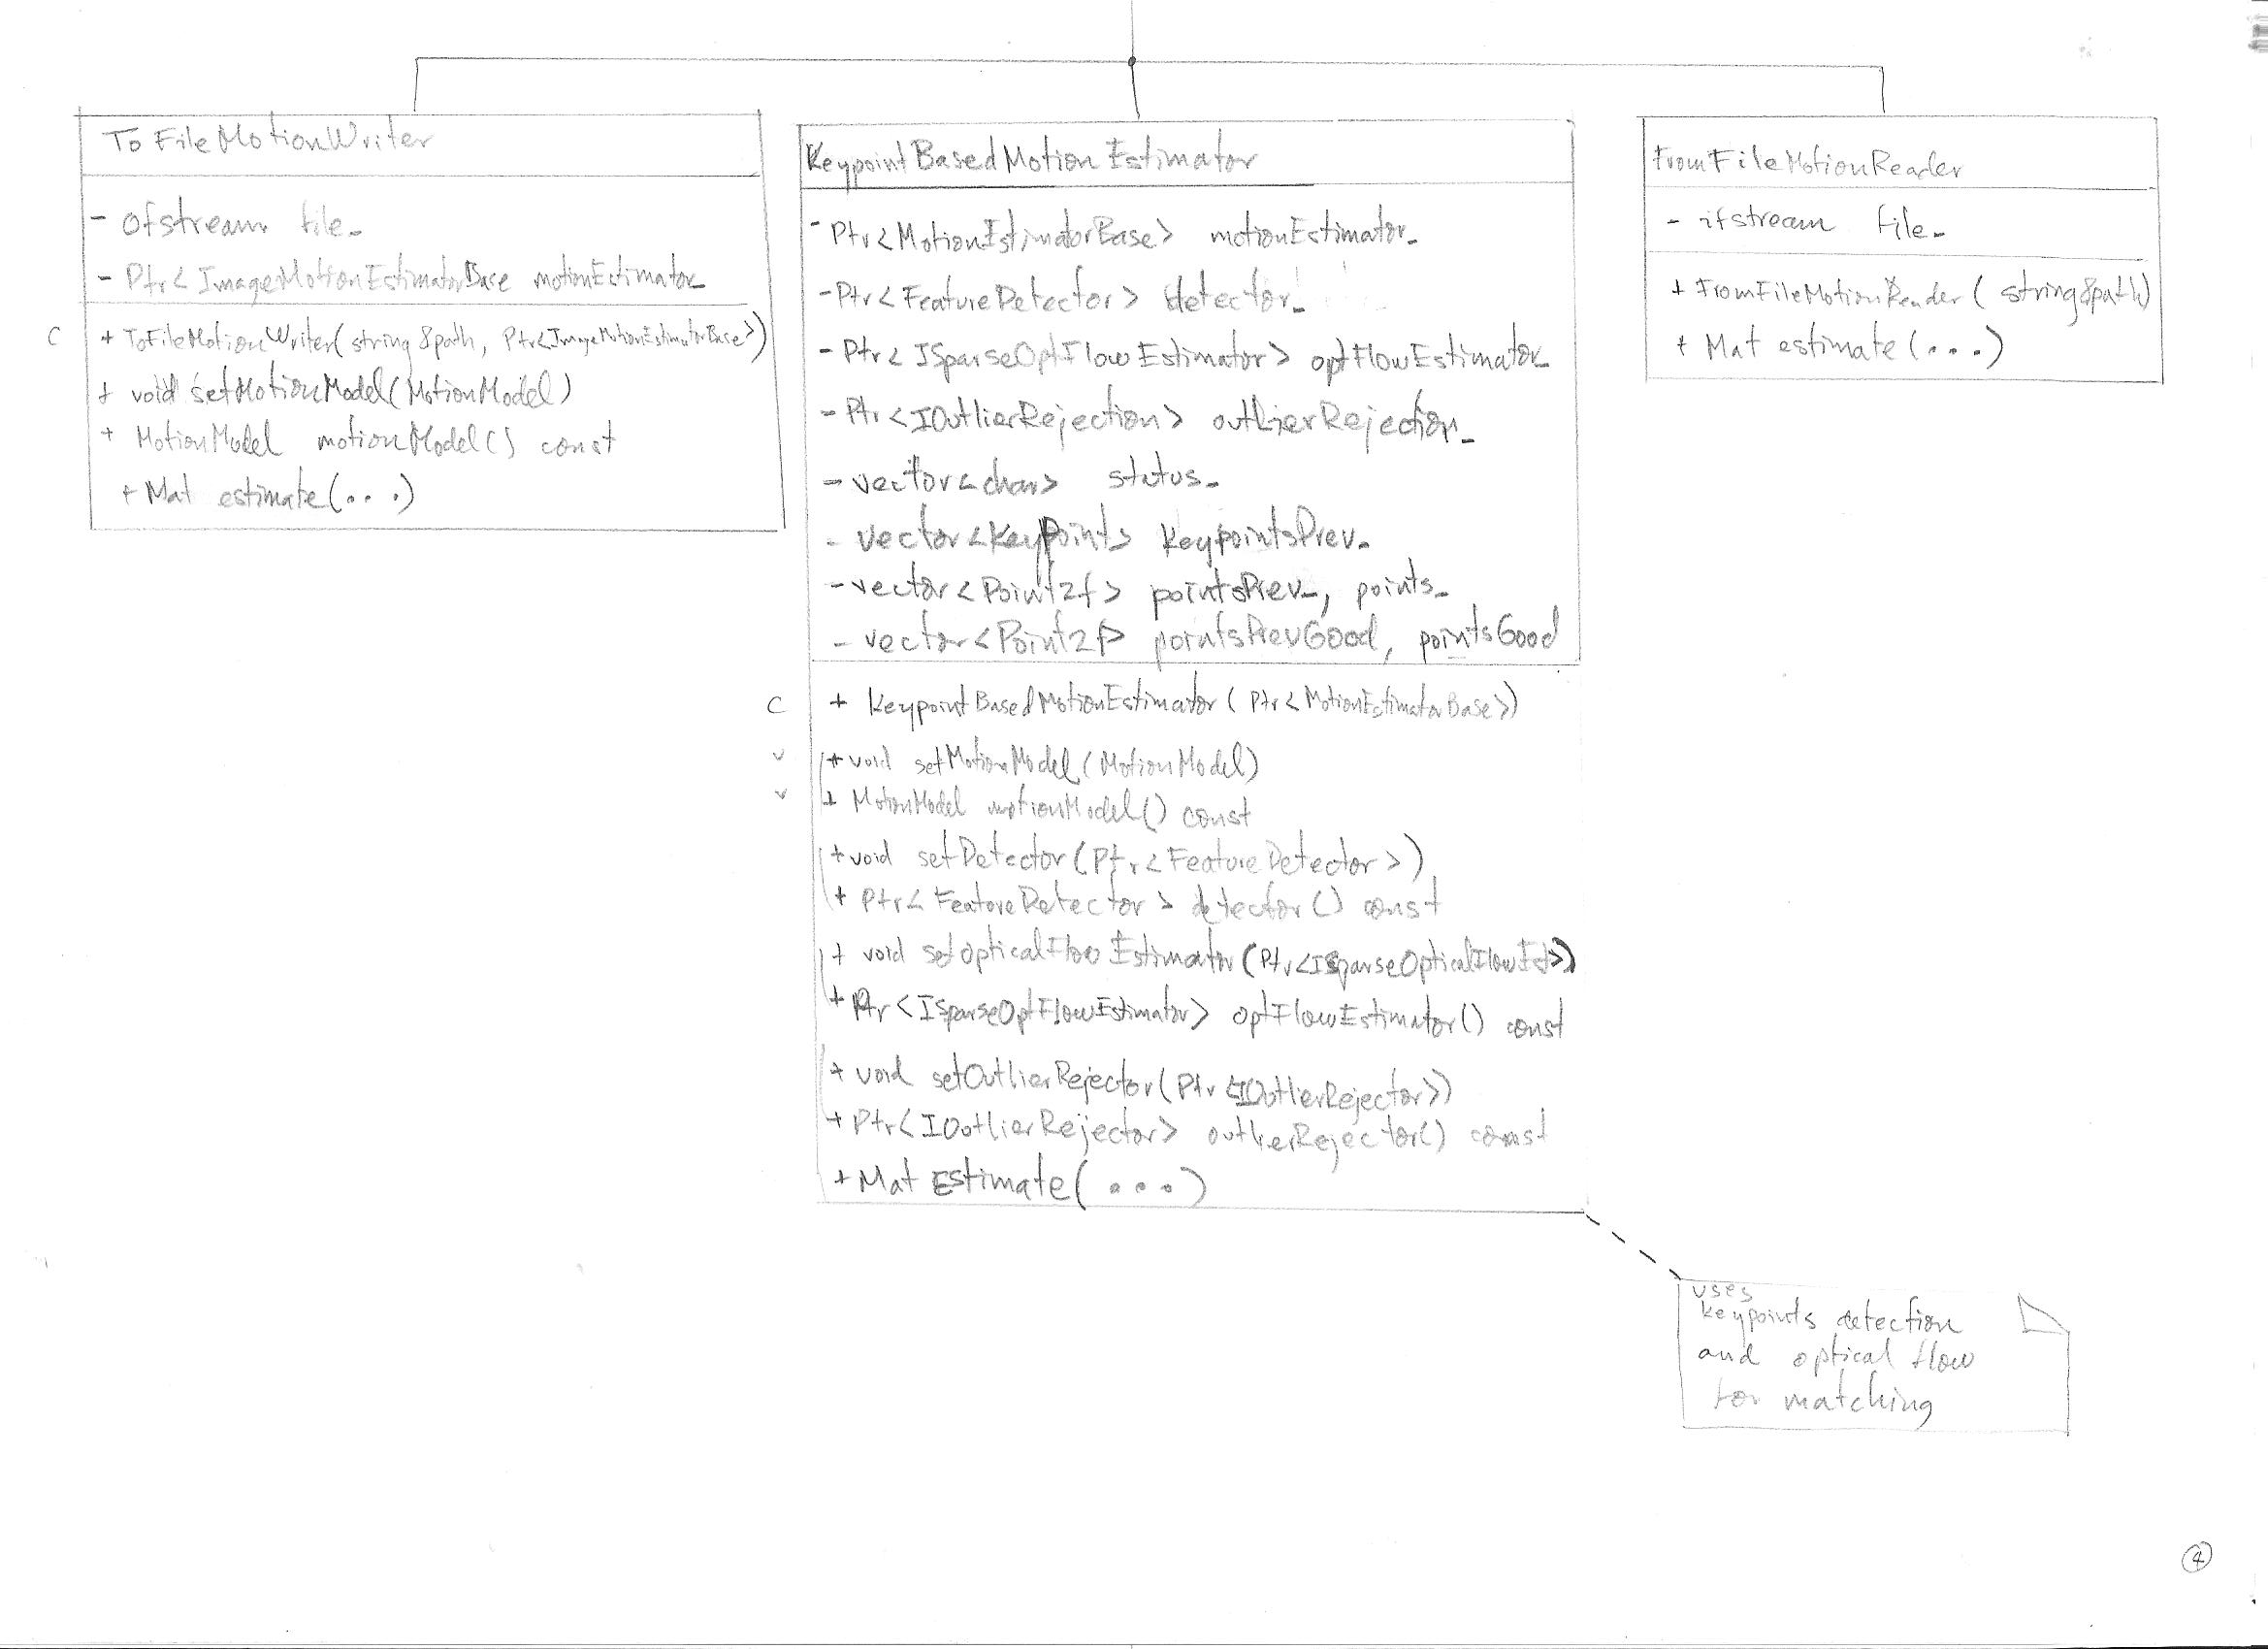 ToFileMotionWriter
- ofstream file_
- Ptr<ImageMotionEstimatorBase motionEstimator_
C + ToFileMotionWriter(string &path, Ptr<ImageMotionEstimatorBase>)
+ void setMotionModel(MotionModel)
+ MotionModel motionModel() const
+ Mat estimate(...)
KeypointBasedMotionEstimator
- Ptr<MotionEstimatorBase> motionEstimator_
- Ptr<FeatureDetector> detector_
- Ptr<ISparseOptFlowEstimator> optFlowEstimator_
- Ptr<IOutlierRejection> outlierRejection_
- vector<char> status_
- vector<KeyPoint> keypointsPrev_
- vector<Point2f> pointsPrev_, points_
- vector<Point2f> pointsPrevGood, pointsGood
C + KeypointBasedMotionEstimator(Ptr<MotionEstimatorBase>)
v + void setMotionModel(MotionModel)
v + MotionModel motionModel() const
+ void setDetector(Ptr<FeatureDetector>)
+ Ptr<FeatureDetector> detector() const
+ void setOpticalFlowEstimator(Ptr<ISparseOpticalFlowEst>)
+ Ptr<ISparseOptFlowEstimator> optFlowEstimator() const
+ void setOutlierRejector(Ptr<IOutlierRejector>)
+ Ptr<IOutlierRejector> outlierRejector() const
+ Mat Estimate(...)
FromFileMotionReader
- ifstream file_
+ FromFileMotionReader(string &path)
+ Mat estimate(...)
uses
keypoints detection
and optical flow
for matching
4